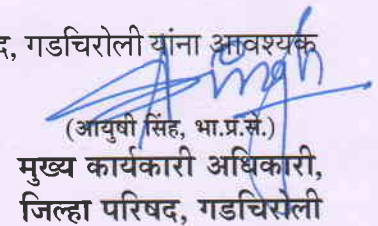 द, गडचिरोली यांना आवश्यक
(आयुषी सिंह, भा.प्र.से.)
मुख्य कार्यकारी अधिकारी,
जिल्हा परिषद, गडचिरोली